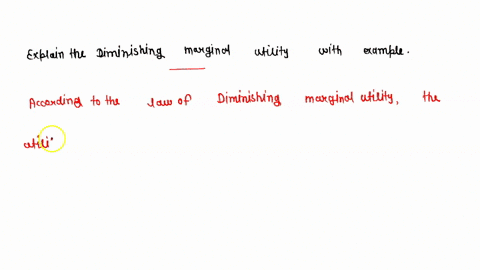 Explain the Diminishing marginal utility with example.
According to the law of Diminishing marginal utility, the
utili